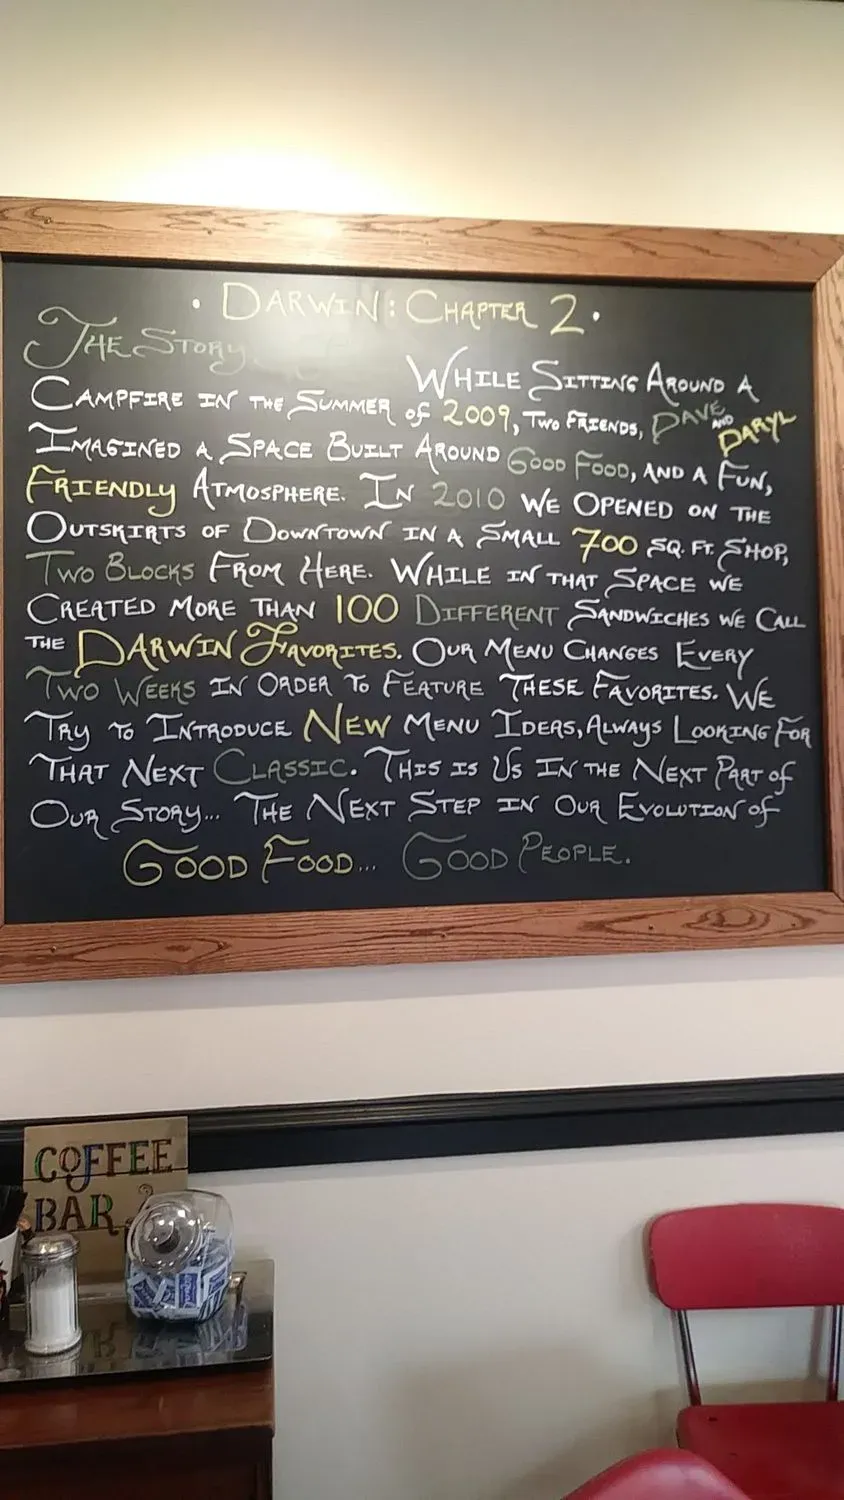 · Darwin: Chapter 2 ·
The Story
While Sitting Around a
Campfire in the Summer of 2009, Two Friends, Dave and Daryl
Imagined a Space Built Around Good Food, and a Fun,
Friendly Atmosphere. In 2010 we Opened on the
Outskirts of Downtown in a Small 700 sq. ft. Shop,
Two Blocks From Here. While in that Space we
Created more than 100 Different Sandwiches we Call
the Darwin Favorites. Our Menu Changes Every
Two Weeks in Order to Feature These Favorites. We
Try to Introduce New Menu Ideas, Always Looking For
That Next Classic. This is Us in the Next Part of
Our Story... The Next Step in Our Evolution of
Good Food... Good People.
COFFEE
BAR